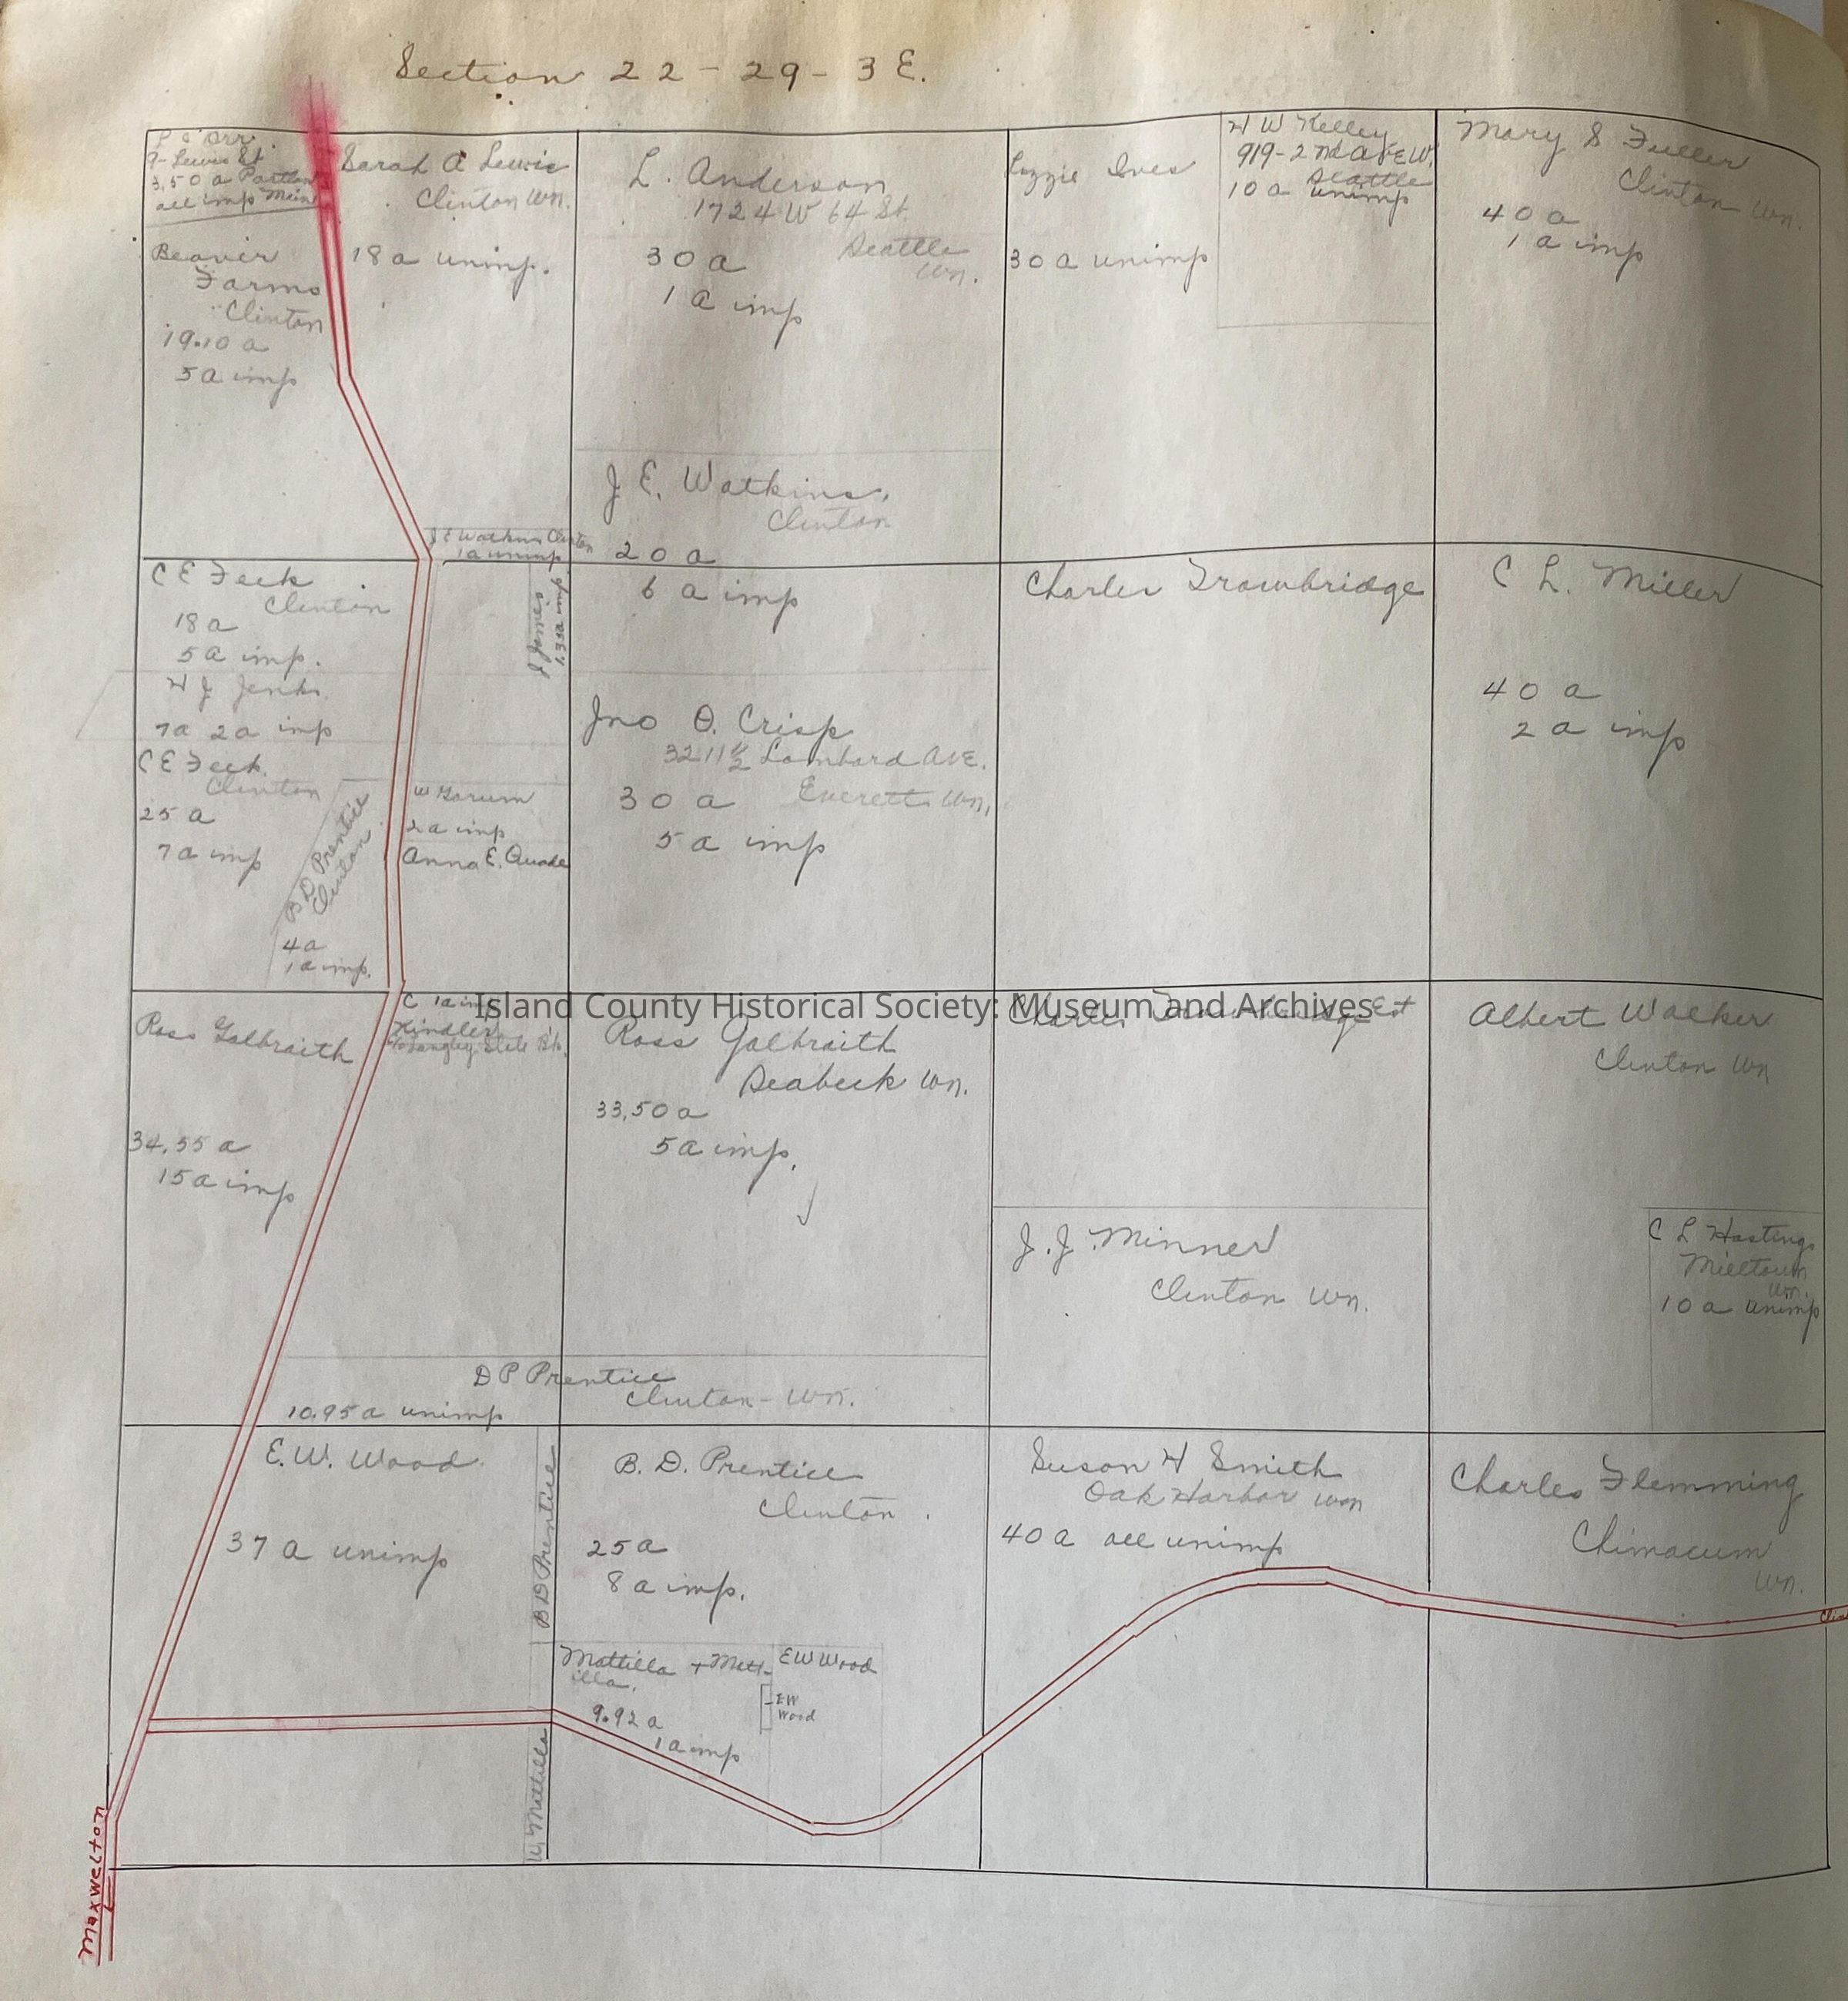 Section 22-29-3 E.
Orr.
9- Lewis St
3.50 a Portland
all imp Main
Sarah A Lewis
Clinton Wn.
18 a unimp.
Beaver
Farms
Clinton
19.10 a
5 a imp
L. Anderson
1724 W 64 St.
Seattle
Wn.
30 a
1 a imp
Lizzie Ives
30 a unimp
H W Kelley
919-2nd Ave W.
Seattle
10 a unimp
Mary S Fuller
Clinton Wn.
40 a
1 a imp
J E. Watkins.
Clinton
20 a
6 a imp
J E Watkins Clinton
1 a unimp
C E Feek
Clinton
18 a
5 a imp.
H J Jenks.
7a 2a imp
C E Feek.
Clinton
25 a
7 a imp
B D Prentice
Clinton
4 a
1 a imp.
1.35a imp
W
2 a imp
Anna E. Quade
Jno O. Crisp
3211½ Lombard Ave.
Everett Wn.
30 a
5 a imp
Charles Trowbridge
C L. Miller
40 a
2 a imp
Island County Historical Society: Museum and Archives
Ross Galbraith
34.55 a
15 a imp
C 1 a imp
Kindler
Langley State Bk.
Ross Galbraith
Seabeck Wn.
33.50 a
5 a imp.
Charles Trowbridge Est
J. J. Minner
Clinton Wn.
Albert Walker
Clinton Wn
C L Hastings
Milltown
Wn.
10 a unimp
D P Prentice
Clinton- Wn.
10.95 a unimp
E. W. Wood
37 a unimp
B D Prentice
W. Mattilla
B. D. Prentice
Clinton.
25 a
8 a imp.
Mattilla + Matt-
illa.
9.92 a
1 a imp
E W Wood
E W
Wood
Susan H Smith
Oak Harbor Wn
40 a all unimp
Charles Flemming
Chimacum
Wn.
Clin
Maxwelton